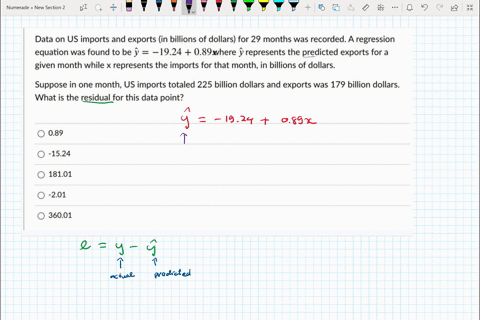 Numerade » New Section 2
Data on US imports and exports (in billions of dollars) for 29 months was recorded. A regression
equation was found to be ŷ = −19.24 + 0.89x where ŷ represents the predicted exports for a
given month while x represents the imports for that month, in billions of dollars.
Suppose in one month, US imports totaled 225 billion dollars and exports was 179 billion dollars.
What is the residual for this data point?
ŷ = -19.24 + 0.89x
0.89
-15.24
181.01
-2.01
360.01
e = y - ŷ
actual predicted